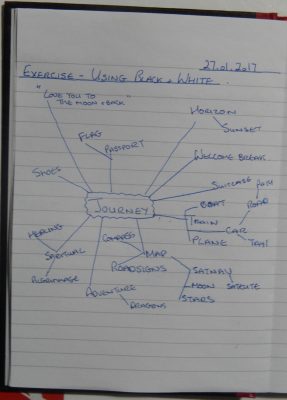 27.01.2017
EXERCISE - USING BLACK + WHITE.
"LOVE YOU TO
THE MOON + BACK"
HORIZON
SUNSET
FLAG
PASSPORT
WELCOME BREAK
SHOES
SUITCASE
PATH
ROAD
BOAT
JOURNEY
TRAIN
CAR
PLANE
TAXI
HEALING
SPIRITUAL
PILGRIMAGE
COMPASS
MAP
ROADSIGNS
SATNAV
MOON
SATELITE
STARS
ADVENTURE
DRAGONS